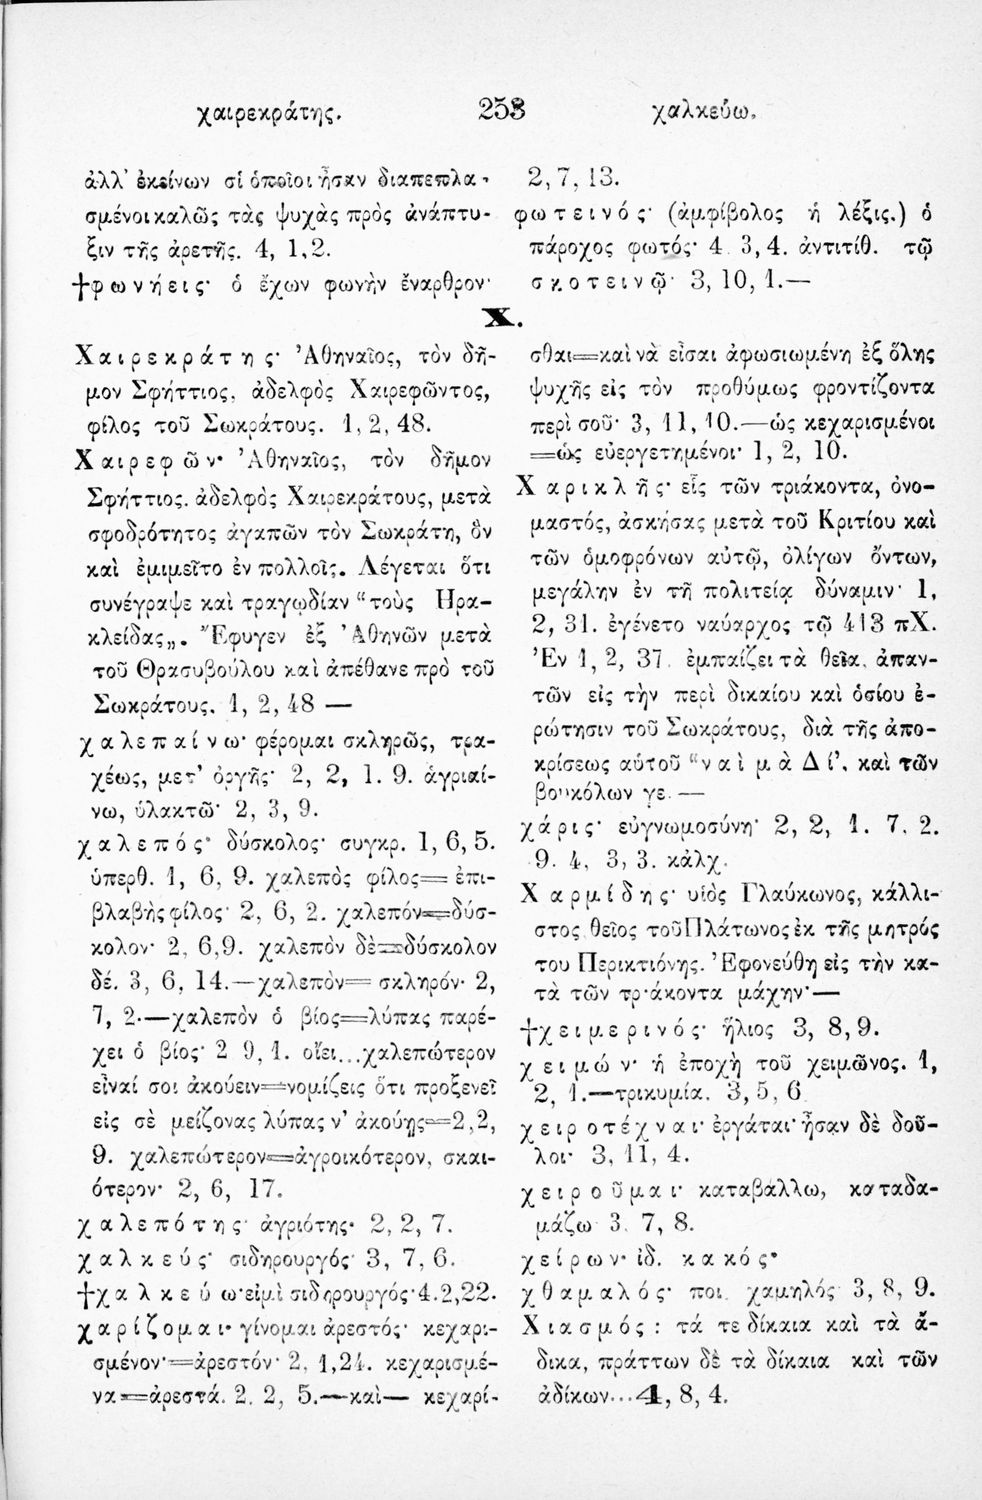 χαιρεκράτης. 253 χαλκεύω.
ἀλλ' ἐκείνων οἱ ὁποῖοι ἦσαν διαπεπλα-
σμένοι καλῶς τὰς ψυχὰς πρὸς ἀνάπτυ-
ξιν τῆς ἀρετῆς. 4, 1,2.
†φωνήεις· ὁ ἔχων φωνὴν ἔναρθρον·
2, 7, 13.
φωτεινός· (ἀμφίβολος ἡ λέξις.) ὁ
πάροχος φωτός· 4 3, 4. ἀντιτίθ. τῷ
σκοτεινῷ· 3, 10, 1.—
Χ.
Χαιρεκράτης· Ἀθηναῖος, τὸν δῆ-
μον Σφήττιος, ἀδελφὸς Χαιρεφῶντος,
φίλος τοῦ Σωκράτους. 1, 2, 48.
Χαιρεφῶν· Ἀθηναῖος, τὸν δῆμον
Σφήττιος. ἀδελφὸς Χαιρεκράτους, μετὰ
σφοδρότητος ἀγαπῶν τὸν Σωκράτη, ὃν
καὶ ἐμιμεῖτο ἐν πολλοῖς. Λέγεται ὅτι
συνέγραψε καὶ τραγῳδίαν “τοὺς Ηρα-
κλείδας„. Ἔφυγεν ἐξ Ἀθηνῶν μετὰ
τοῦ Θρασυβούλου καὶ ἀπέθανε πρὸ τοῦ
Σωκράτους. 1, 2, 48 —
χαλεπαίνω· φέρομαι σκληρῶς, τρα-
χέως, μετ' ὀργῆς· 2, 2, 1. 9. ἀγριαί-
νω, ὑλακτῶ· 2, 3, 9.
χαλεπός· δύσκολος· συγκρ. 1, 6, 5.
ὑπερθ. 1, 6, 9. χαλεπὸς φίλος=ἐπι-
βλαβὴς φίλος· 2, 6, 2. χαλεπόν=δύσ-
κολον· 2, 6,9. χαλεπὸν δὲ=δύσκολον
δέ. 3, 6, 14.—χαλεπὸν=σκληρόν· 2,
7, 2·—χαλεπὸν ὁ βίος=λύπας παρέ-
χει ὁ βίος· 2 9, 1. οἴει...χαλεπώτερον
εἶναί σοι ἀκούειν=νομίζεις ὅτι προξενεῖ
εἰς σὲ μείζονας λύπας ν' ἀκούῃς=2,2,
9. χαλεπώτερον=ἀγροικότερον, σκαι-
ότερον· 2, 6, 17.
χαλεπότης· ἀγριότης· 2, 2, 7.
χαλκεύς· σιδηρουργός· 3, 7, 6.
†χαλκεύω·εἰμὶ σιδηρουργός·4.2,22.
χαρίζομαι· γίνομαι ἀρεστός· κεχαρι-
σμένον·=ἀρεστόν· 2, 1,24. κεχαρισμέ-
να=ἀρεστά. 2. 2, 5.—καὶ— κεχαρί-
σθαι=καὶ νὰ εἶσαι ἀφωσιωμένη ἐξ ὅλης
ψυχῆς εἰς τὸν προθύμως φροντίζοντα
περὶ σοῦ· 3, 11, 10.—ὡς κεχαρισμένοι
=ὡς εὐεργετημένοι· 1, 2, 10.
Χαρικλῆς· εἷς τῶν τριάκοντα, ὀνο-
μαστός, ἀσκήσας μετὰ τοῦ Κριτίου καὶ
τῶν ὁμοφρόνων αὐτῷ, ὀλίγων ὄντων,
μεγάλην ἐν τῇ πολιτείᾳ δύναμιν· 1,
2, 31. ἐγένετο ναύαρχος τῷ 413 πΧ.
Ἐν 1, 2, 37. ἐμπαίζει τὰ θεῖα. ἀπαν-
τῶν εἰς τὴν περὶ δικαίου καὶ ὁσίου ἐ-
ρώτησιν τοῦ Σωκράτους, διὰ τῆς ἀπο-
κρίσεως αὐτοῦ “ναὶ μὰ Δί', καὶ τῶν
βουκόλων γε. —
χάρις· εὐγνωμοσύνη· 2, 2, 1. 7. 2.
9. 4, 3, 3. κἀλχ.
Χαρμίδης· υἱὸς Γλαύκωνος, κάλλι-
στος θεῖος τοῦ Πλάτωνος ἐκ τῆς μητρός
του Περικτιόνης. Ἐφονεύθη εἰς τὴν κα-
τὰ τῶν τριάκοντα μάχην·—
†χειμερινός· ἥλιος 3, 8, 9.
χειμών· ἡ ἐποχὴ τοῦ χειμῶνος. 1,
2, 1.—τρικυμία. 3, 5, 6
χειροτέχναι· ἐργάται· ἦσαν δὲ δοῦ-
λοι· 3, 11, 4.
χειροῦμαι· καταβάλλω, καταδα-
μάζω 3. 7, 8.
χείρων· ἰδ. κακός·
χθαμαλός· ποι. χαμηλός· 3, 8, 9.
Χιασμός: τά τε δίκαια καὶ τὰ ἄ-
δικα, πράττων δὲ τὰ δίκαια καὶ τῶν
ἀδίκων...4, 8, 4.